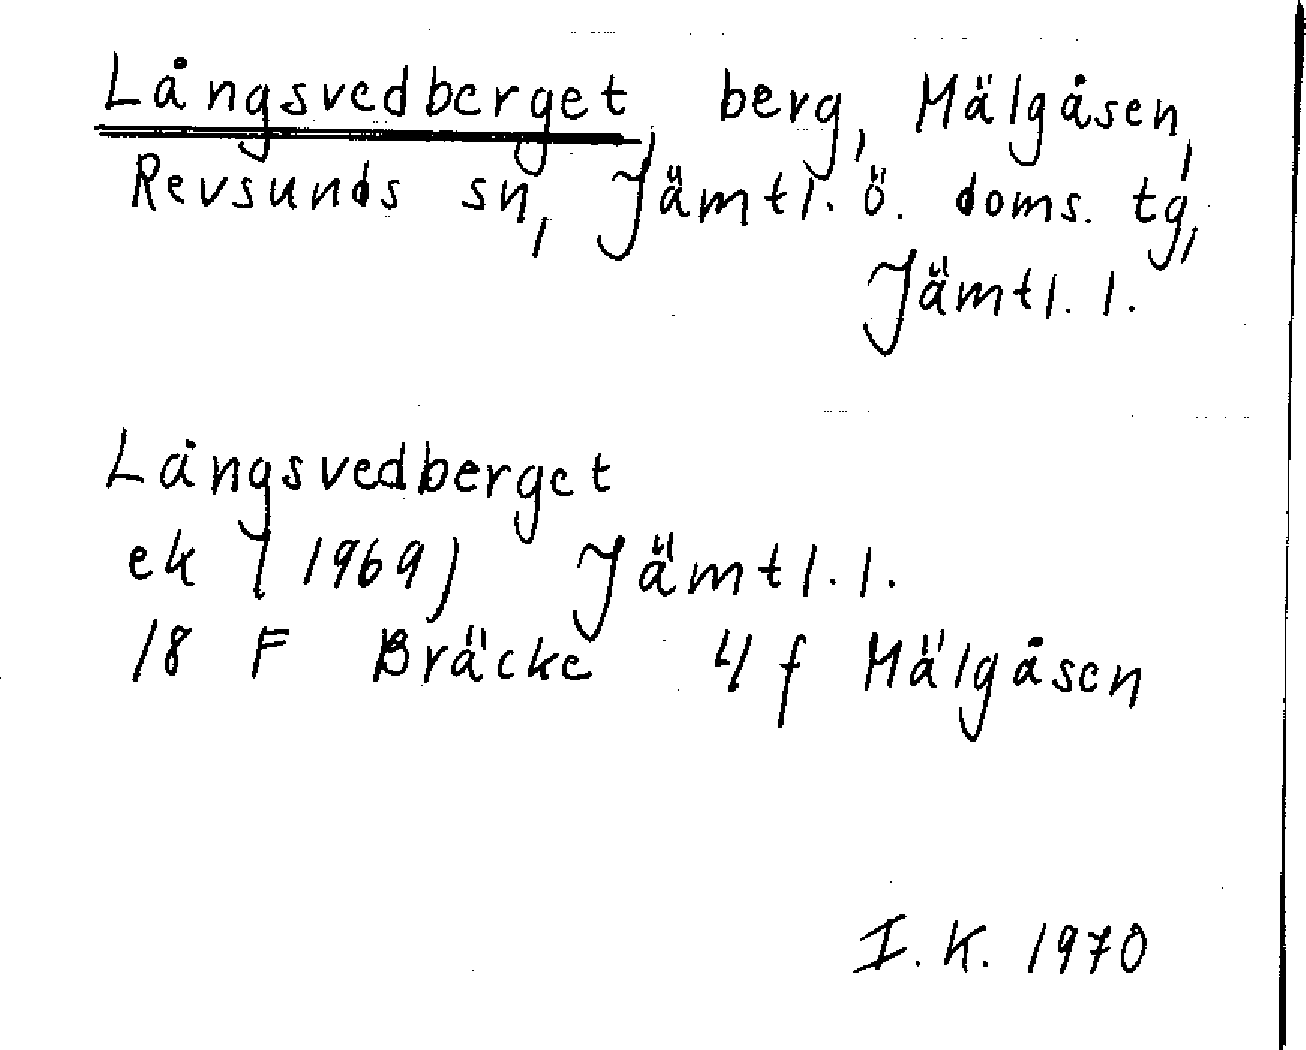 Långsvedberget, berg, Mälgåsen,
Revsunds sn, Jämtl. ö. doms. tg,
Jämtl. l.
Långsvedberget
ek (1969) Jämtl. l.
18 F Bräcke 4 f Mälgåsen
I. K. 1970